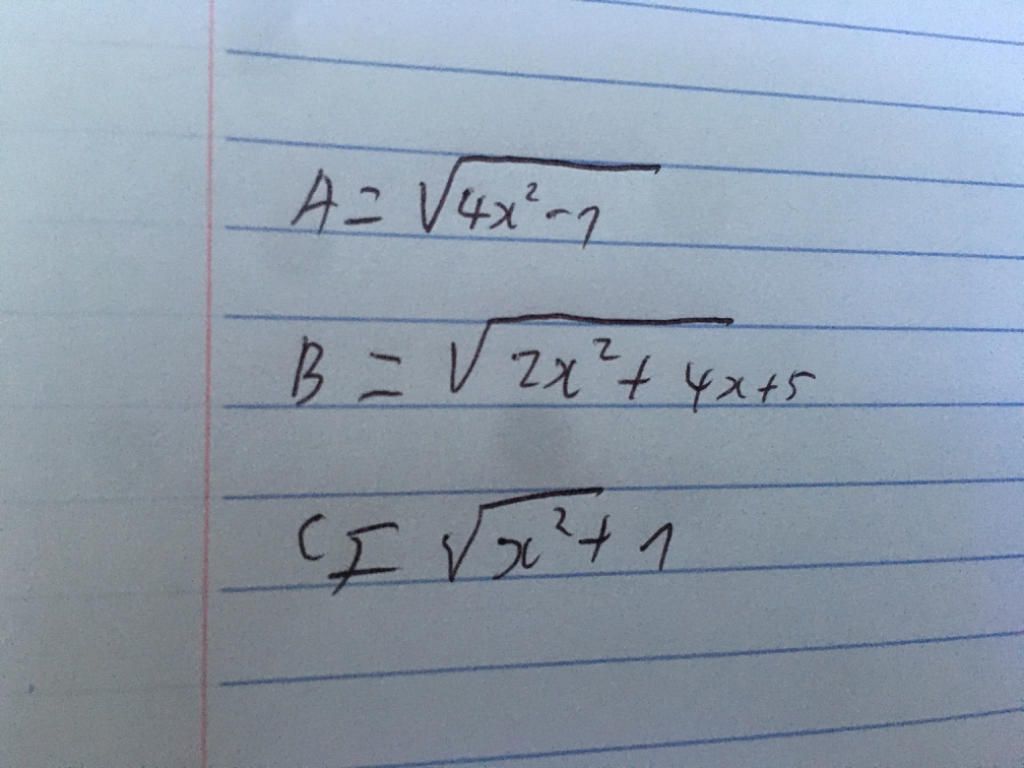 A = √4x²-1
B = √2x²+4x+5
C = √x²+1